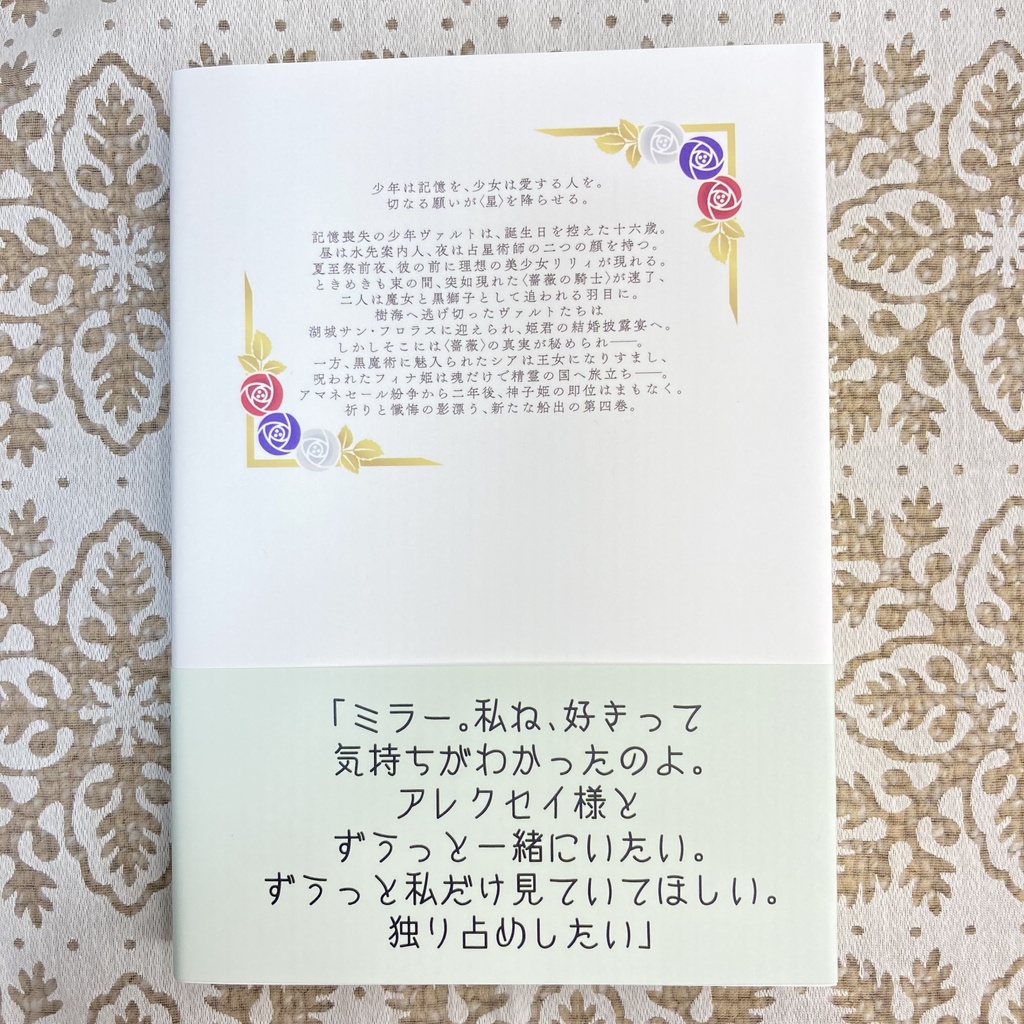 少年は記憶を、少女は愛する人を。
切なる願いが〈星〉を降らせる。
記憶喪失の少年ヴァルトは、誕生日を控えた十六歳。
昼は水先案内人、夜は占星術師の二つの顔を持つ。
夏至祭前夜、彼の前に理想の美少女リリィが現れる。
ときめきも束の間、突如現れた〈薔薇の騎士〉が速了、
二人は魔女と黒獅子として追われる羽目に。
樹海へ逃げ切ったヴァルトたちは
湖城サン・フロラスに迎えられ、姫君の結婚披露宴へ。
しかしそこには〈薔薇〉の真実が秘められ――。
一方、黒魔術に魅入られたシアは王女になりすまし、
呪われたフィナ姫は魂だけで精霊の国へ旅立ち――。
アマネセール紛争から二年後、神子姫の即位はまもなく。
祈りと懺悔の影漂う、新たな船出の第四巻。
「ミラー。私ね、好きって
気持ちがわかったのよ。
アレクセイ様と
ずぅっと一緒にいたい。
ずぅっと私だけ見ていてほしい。
独り占めしたい」